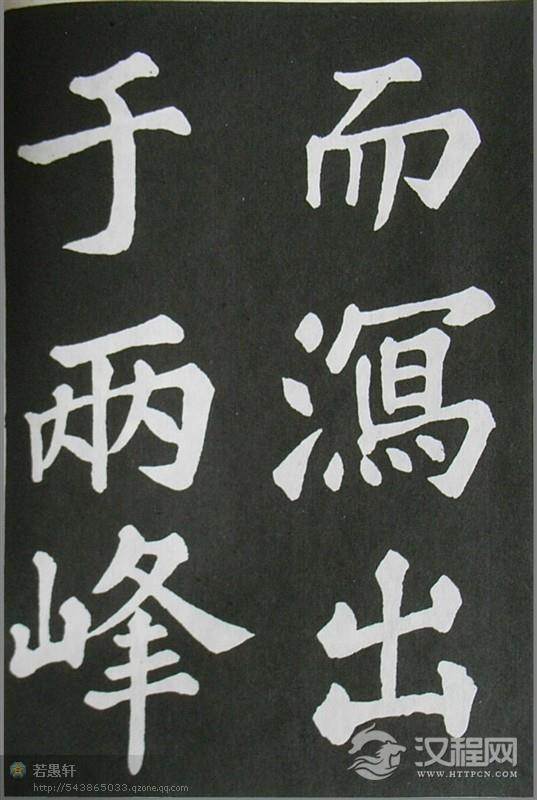 而瀉出
于兩峰
若愚轩
http://543865033.qzone.qq.com
汉程网
WWW.HTTPCN.COM